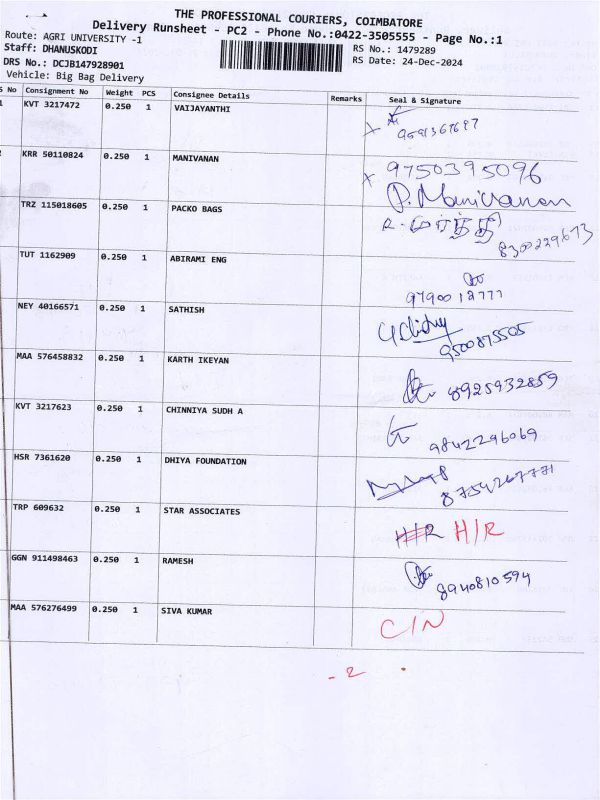 THE PROFESSIONAL COURIERS, COIMBATORE
Delivery Runsheet - PC2 - Phone No.:0422-3505555 - Page No.:1
Route: AGRI UNIVERSITY -1
RS No.: 1479289
Staff: DHANUSKODI
RS Date: 24-Dec-2024
DRS No.: DCJB147928901
Vehicle: Big Bag Delivery
S No Consignment No Weight PCS Consignee Details Remarks Seal & Signature
KVT 3217472 0.250 1 VAIJAYANTHI
KRR 50110824 0.250 1 MANIVANAN 9750395096
P. Manivanan
TRZ 115018605 0.250 1 PACKO BAGS
8300229673
TUT 1162909 0.250 1 ABIRAMI ENG
9790012777
NEY 40166571 0.250 1 SATHISH
9500875505
MAA 576458832 0.250 1 KARTH IKEYAN 8925932859
KVT 3217623 0.250 1 CHINNIYA SUDH A 9842296069
HSR 7361620 0.250 1 DHIYA FOUNDATION 8754267771
TRP 609632 0.250 1 STAR ASSOCIATES H/R H/R
GGN 911498463 0.250 1 RAMESH 8940810594
MAA 576276499 0.250 1 SIVA KUMAR C/N
- 2